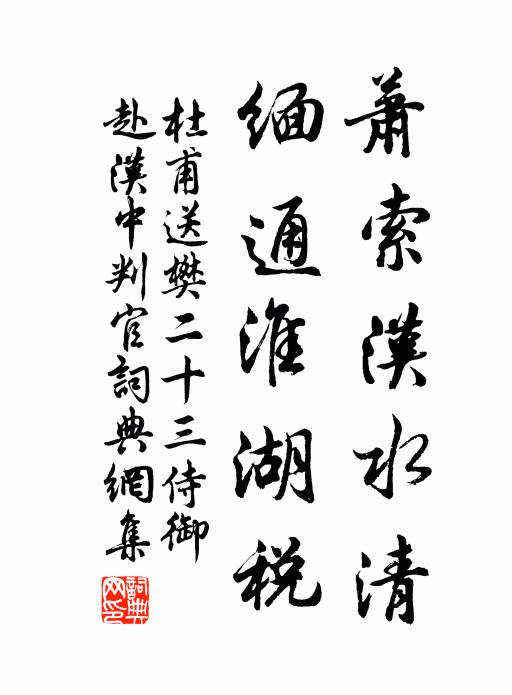 蕭索漢水清
緬通淮湖税
杜甫送樊二十三侍御
赴漢中判官詞典網集
詞典
网印